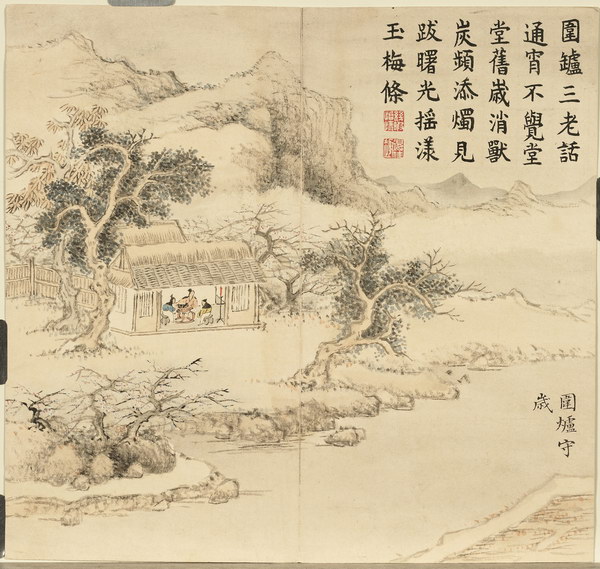 圍鑪三老話
通宵不覺堂
堂舊歲消獸
炭頻添燭見
跋曙光揺漾
玉梅條
圍爐守
歲